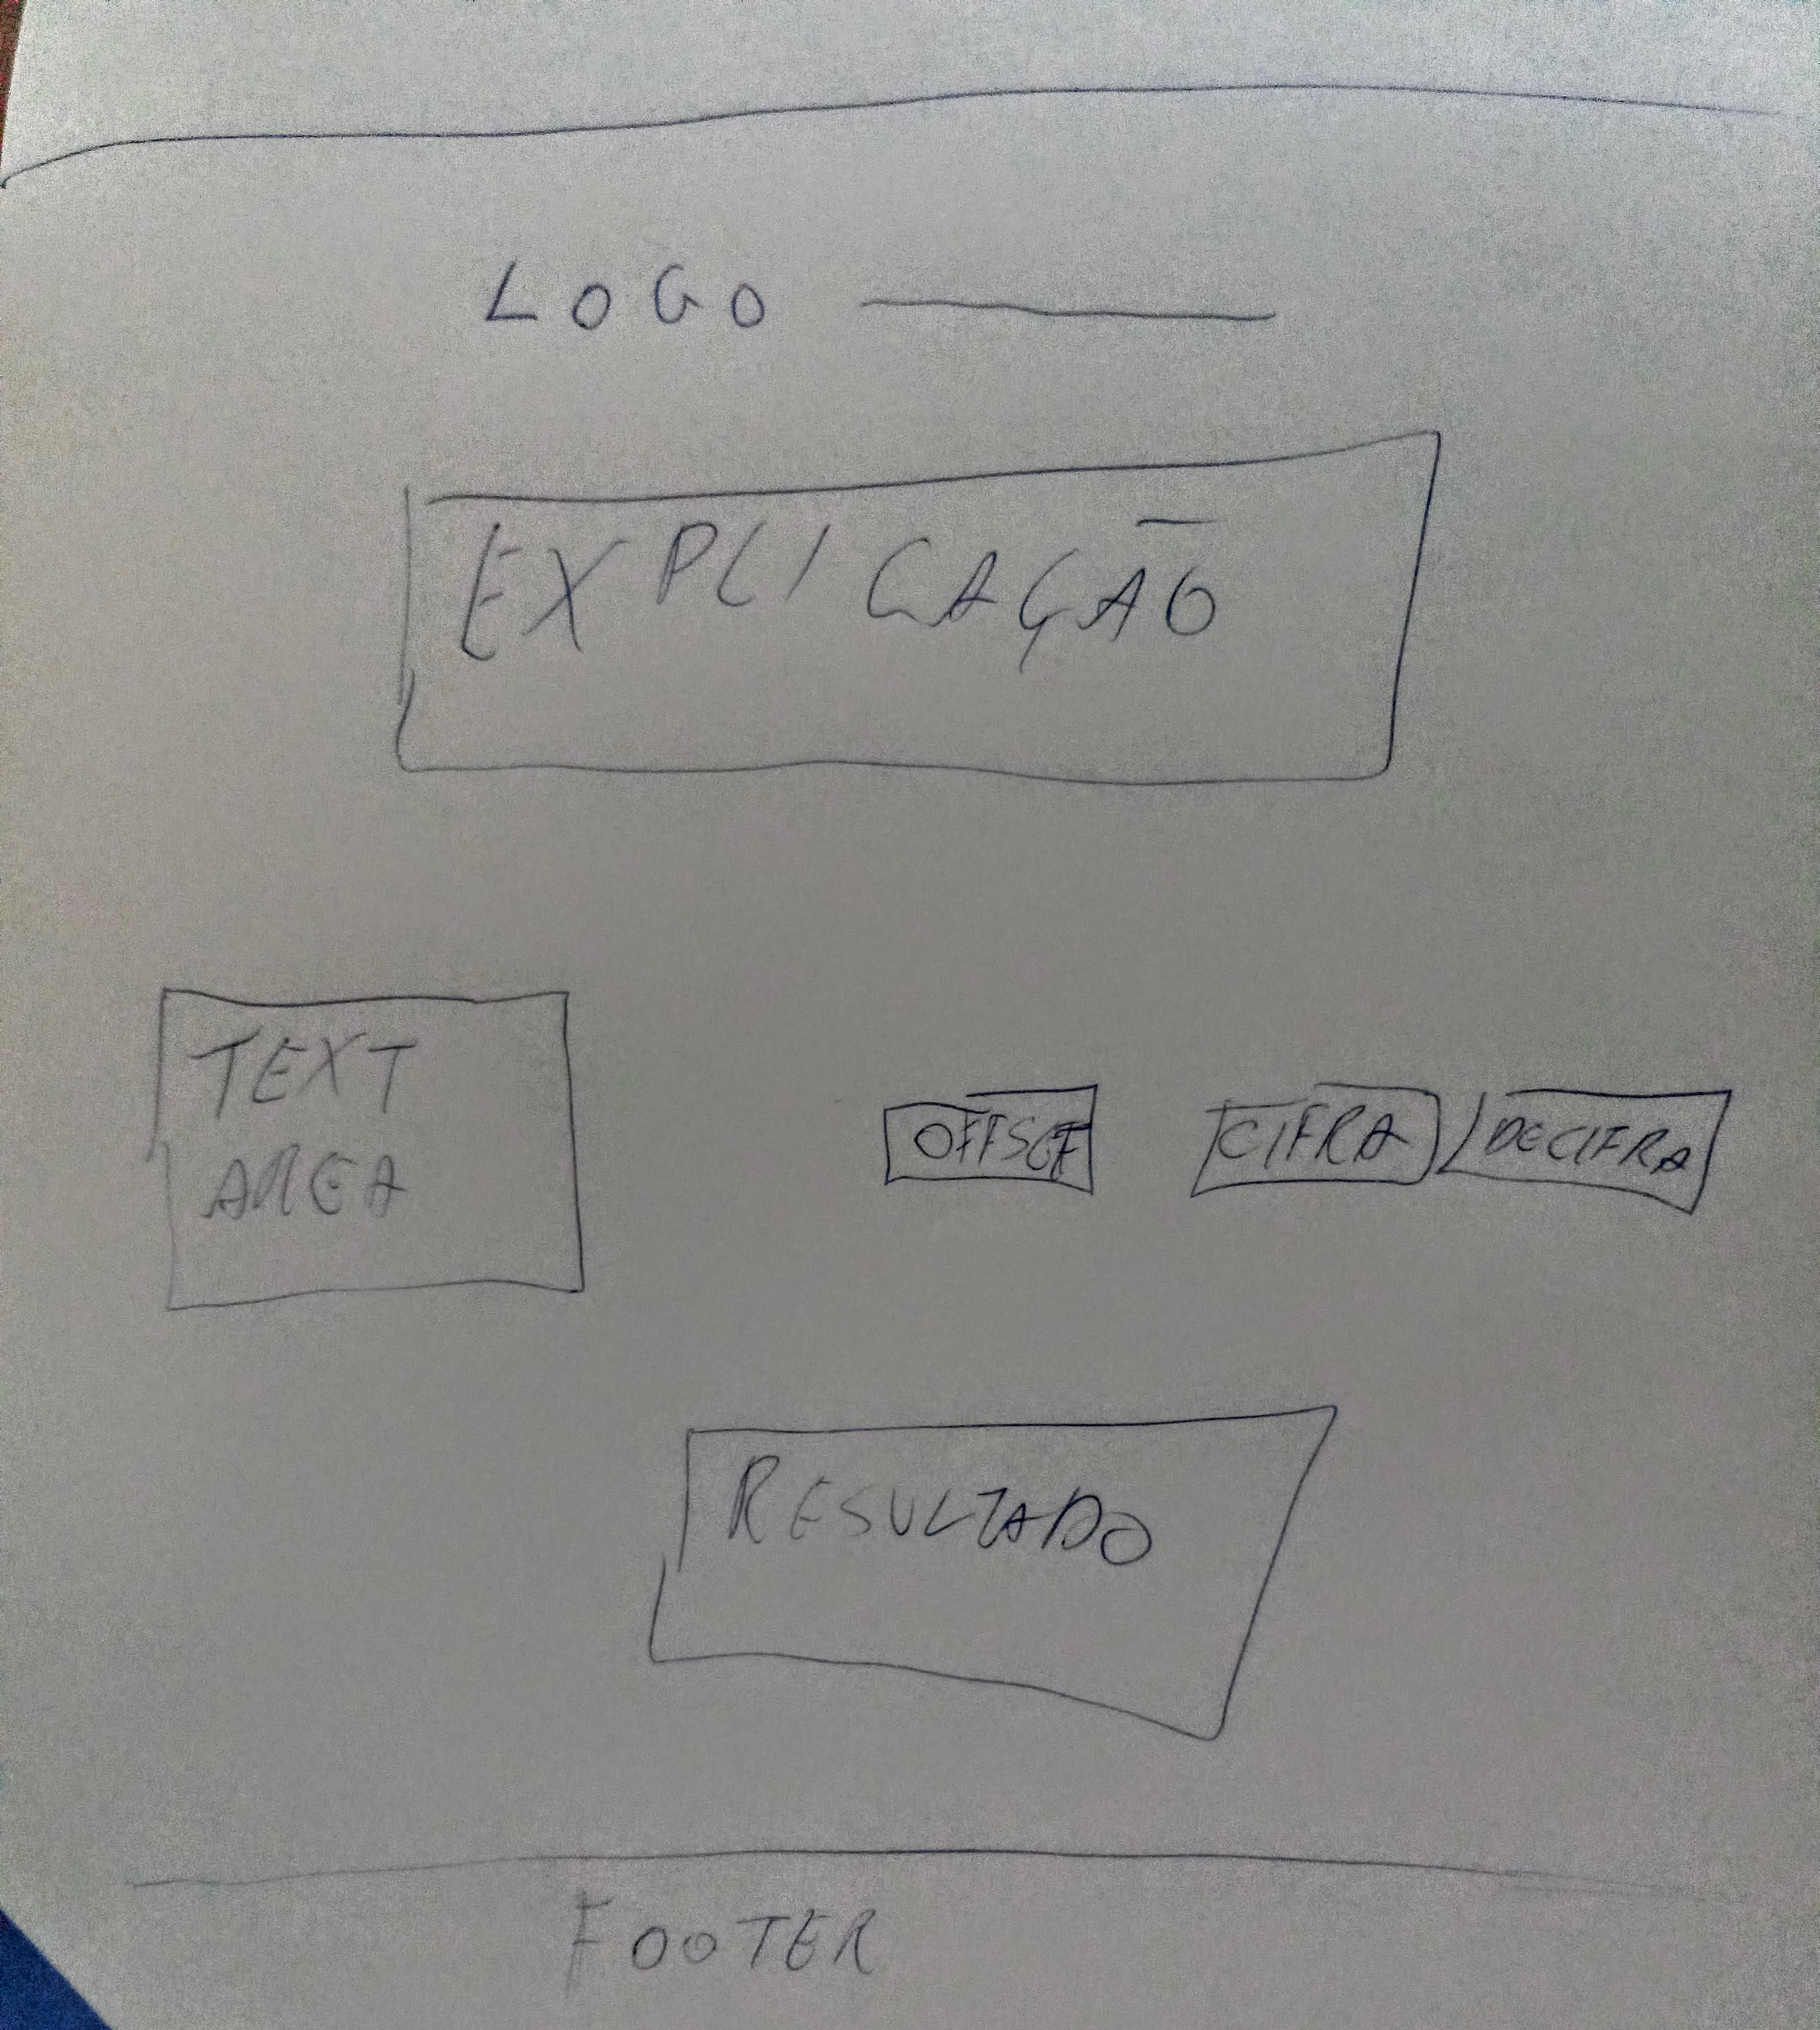 LOGO
EXPLICAÇÃO
TEXT
AREA
OFFSET
CIFRA
DECIFRA
RESULTADO
FOOTER